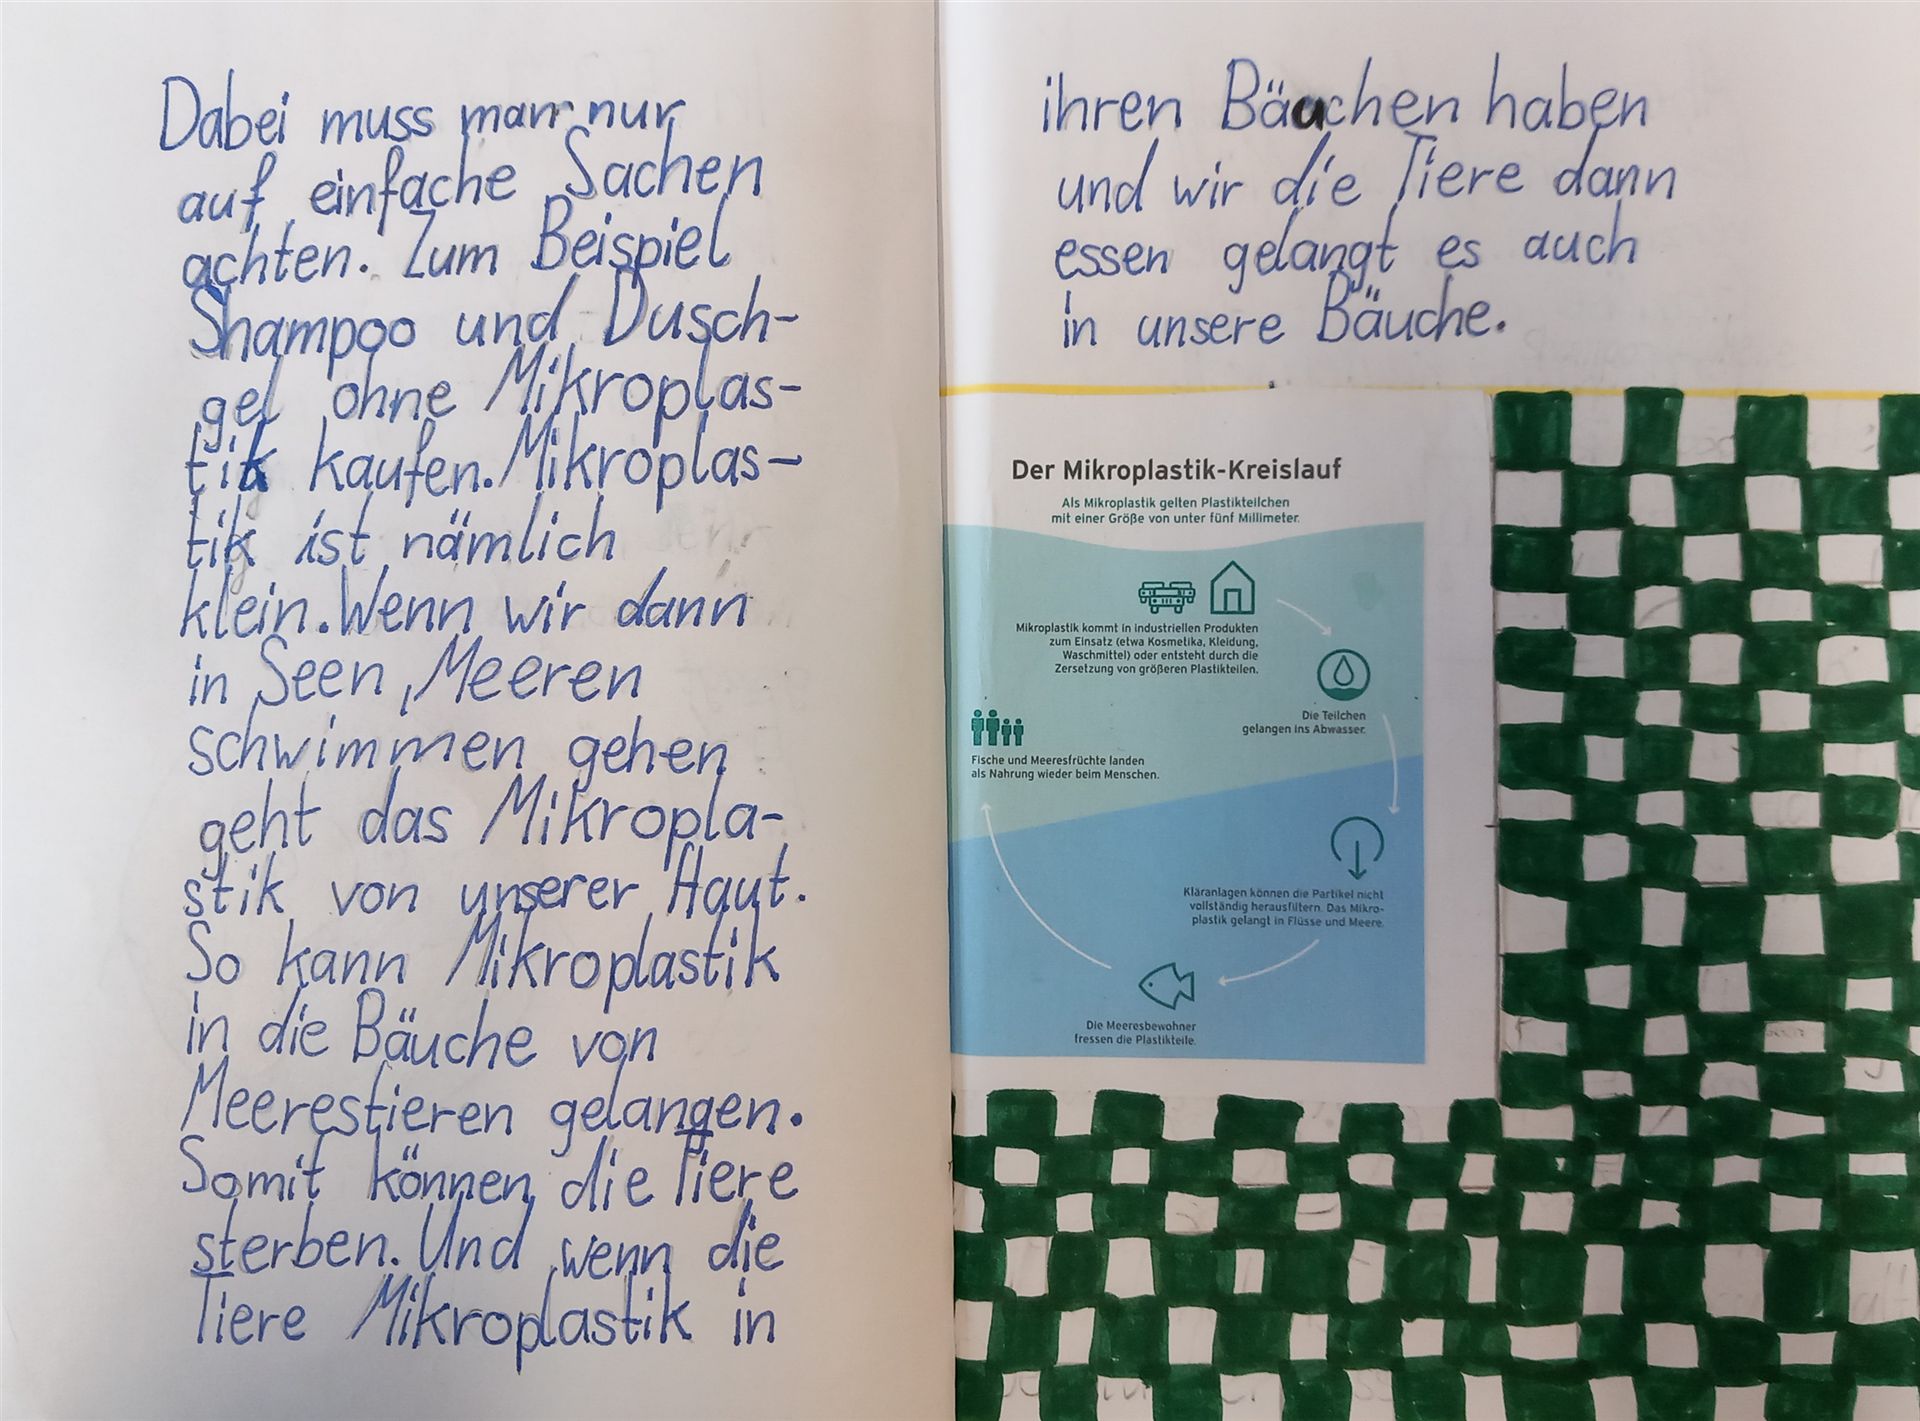 Dabei muss man nur
auf einfache Sachen
achten. Zum Beispiel
Shampoo und Dusch-
gel ohne Mikroplas-
tik kaufen. Mikroplas-
tik ist nämlich
klein. Wenn wir dann
in Seen, Meeren
schwimmen gehen
geht das Mikropla-
stik von unserer Haut.
So kann Mikroplastik
in die Bäuche von
Meerestieren gelangen.
Somit können die Tiere
sterben. Und wenn die
Tiere Mikroplastik in
ihren Bäuchen haben
und wir die Tiere dann
essen gelangt es auch
in unsere Bäuche.
Der Mikroplastik-Kreislauf
Als Mikroplastik gelten Plastikteilchen
mit einer Größe von unter fünf Millimeter.
Mikroplastik kommt in industriellen Produkten
zum Einsatz (etwa Kosmetika, Kleidung,
Waschmittel) oder entsteht durch die
Zersetzung von größeren Plastikteilen.
Die Teilchen
gelangen ins Abwasser.
Fische und Meeresfrüchte landen
als Nahrung wieder beim Menschen.
Kläranlagen können die Partikel nicht
vollständig herausfiltern. Das Mikro-
plastik gelangt in Flüsse und Meere.
Die Meeresbewohner
fressen die Plastikteile.